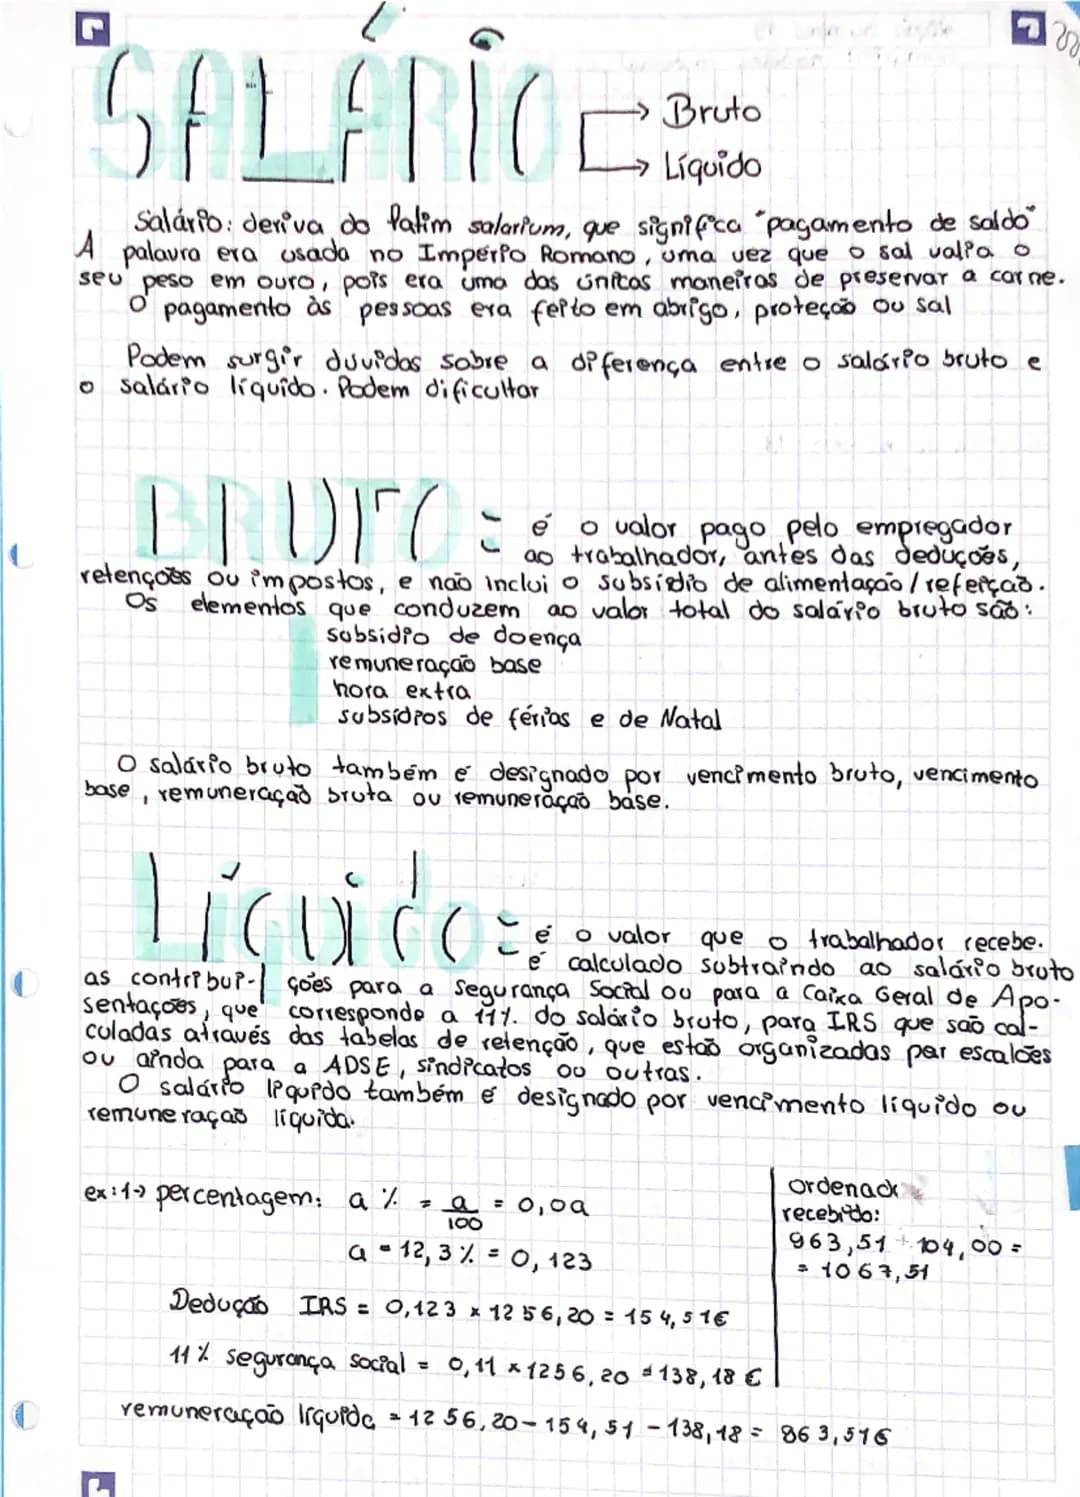 SALÁRIO → Bruto
→ Líquido
Salário: deriva do latim salarium, que significa "pagamento de saldo"
A palavra era usada no Império Romano, uma vez que o sal valia o
seu peso em ouro, pois era uma das únicas maneiras de preservar a carne.
O pagamento às pessoas era feito em abrigo, proteção ou sal
Podem surgir duvidas sobre a diferença entre o salário bruto e
o salário líquido. Podem dificultar
BRUTO = é o valor pago pelo empregador
ao trabalhador, antes das deduções,
retenções ou impostos, e não inclui o subsídio de alimentação/refeição.
Os elementos que conduzem ao valor total do salário bruto são:
subsidio de doença
remuneração base
hora extra
subsídios de férias e de Natal
O salário bruto também é designado por vencimento bruto, vencimento
base, remuneração bruta ou remuneração base.
Líquido = é o valor que o trabalhador recebe.
é calculado subtraindo ao salário bruto
as contribui-ções para a Segurança Social ou para a Caixa Geral de Apo-
sentações, que corresponde a 11% do salário bruto, para IRS que são cal-
culadas através das tabelas de retenção, que estão organizadas por escalões
ou ainda para a ADSE, sindicatos ou outras.
O salário líquido também é designado por vencimento líquido ou
remuneração líquida.
ex:1→ percentagem: a % = a/100 = 0,0a
a = 12,3% = 0,123
Dedução IRS = 0,123 x 1256,20 = 154,51€
11% segurança social = 0,11 x 1256,20 = 138,18 €
remuneração líquida = 1256,20 - 154,51 - 138,18 = 863,51€
Ordenado
recebido:
963,51 + 104,00 =
= 1067,51